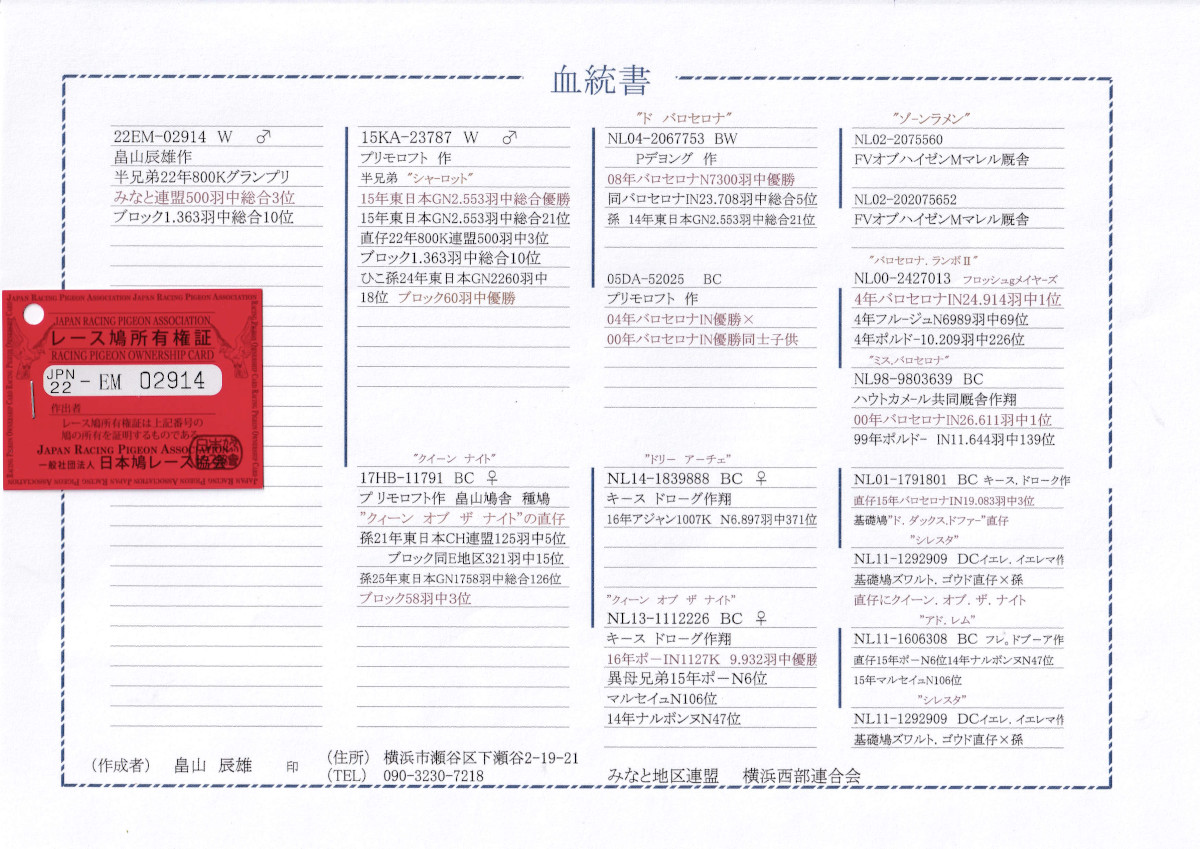 血統書
22EM-02914 W ♂
畠山辰雄作
半兄弟22年800Kグランプリ
みなと連盟500羽中総合3位
ブロック1.363羽中総合10位
JAPAN RACING PIGEON ASSOCIATION JAPAN RACING PIGEON ASSOCIATION
JAPAN RACING PIGEON ASSOCIATION
レース鳩所有権証
RACING PIGEON OWNERSHIP CARD
JPN
22 - EM 02914
作出者
レース鳩所有権証は上記番号の
鳩の所有を証明するものである
JAPAN RACING PIGEON ASSOCIATION
一般社団法人 日本鳩レース協会
15KA-23787 W ♂
プリモロフト 作
半兄弟 "シャーロット"
15年東日本GN2.553羽中総合優勝
15年東日本GN2.553羽中総合21位
直仔22年800K連盟500羽中3位
ブロック1.363羽中総合10位
ひこ孫24年東日本GN2260羽中
18位 ブロック60羽中優勝
"クイーン ナイト"
17HB-11791 BC ♀
プリモロフト作 畠山鳩舎 種鳩
"クィーン オブ ザ ナイト"の直仔
孫21年東日本CH連盟125羽中5位
ブロック同E地区321羽中15位
孫25年東日本GN1758羽中総合126位
ブロック58羽中3位
"ド バロセロナ"
NL04-2067753 BW
Pデヨング 作
08年バロセロナN7300羽中優勝
同バロセロナIN23.708羽中総合5位
孫 14年東日本GN2.553羽中総合21位
05DA-52025 BC
プリモロフト 作
04年バロセロナIN優勝×
00年バロセロナIN優勝同士子供
"ドリー アーチェ"
NL14-1839888 BC ♀
キース ドローグ作翔
16年アジャン1007K N6.897羽中371位
"クィーン オブ ザ ナイト"
NL13-1112226 BC ♀
キース ドローグ作翔
16年ポーIN1127K 9.932羽中優勝
異母兄弟15年ポーN6位
マルセイュN106位
14年ナルボンヌN47位
"ゾーンラメン"
NL02-2075560
FVオブハイゼンMマレル厩舎
NL02-202075652
FVオブハイゼンMマレル厩舎
"バロセロナ.ランボⅡ"
NL00-2427013 フロッシュgメイヤーズ
4年バロセロナIN24.914羽中1位
4年フルージュN6989羽中69位
4年ボルド-10.209羽中226位
"ミス.バロセロナ"
NL98-9803639 BC
ハウトカメール共同厩舎作翔
00年バロセロナIN26.611羽中1位
99年ボルドー IN11.644羽中139位
NL01-1791801 BC キース.ドローク作
直仔15年バロセロナIN19.083羽中3位
基礎鳩"ド.ダックス.ドファー"直仔
"シレスタ"
NL11-1292909 DCイエレ.イエレマ作
基礎鳩ズワルト.ゴウド直仔×孫
直仔にクイーン.オブ.ザ.ナイト
"アド.レム"
NL11-1606308 BC フレ。ドブーア作
直仔15年ポーN6位14年ナルボンヌN47位
15年マルセイュN106位
"シレスタ"
NL11-1292909 DCイエレ.イエレマ作
基礎鳩ズワルト.ゴウド直仔×孫
(作成者) 畠山 辰雄 印
(住所) 横浜市瀬谷区下瀬谷2-19-21
(TEL) 090-3230-7218
みなと地区連盟 横浜西部連合会